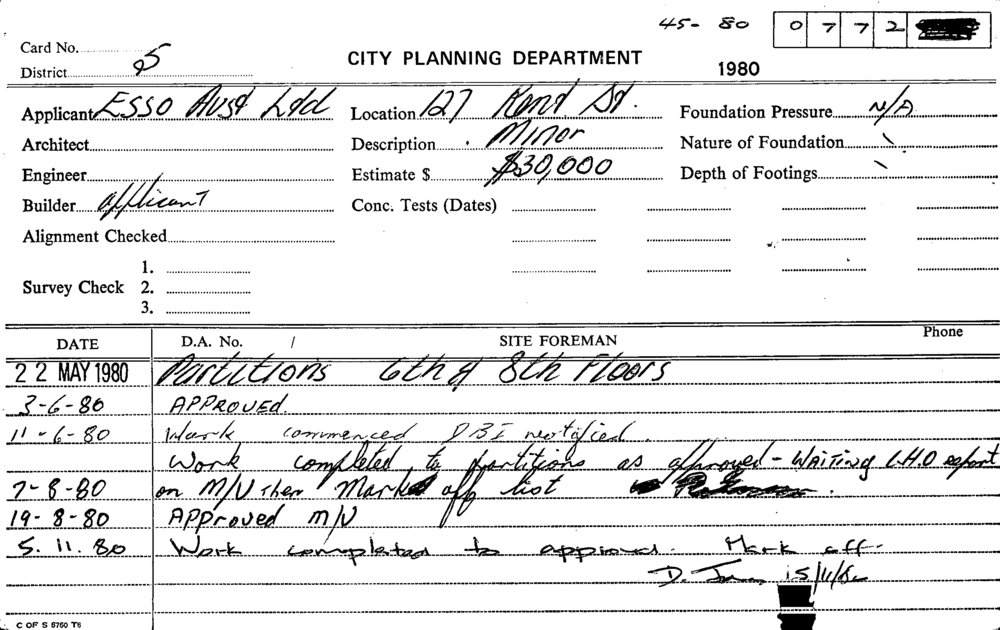 45- 80 0 7 7 2
Card No.
District 5
CITY PLANNING DEPARTMENT
1980
Applicant Esso Aust Ltd Location 127 Kent St. Foundation Pressure N/A
Architect Description Minor Nature of Foundation \
Engineer Estimate $ $30,000 Depth of Footings \
Builder applicant Conc. Tests (Dates)
Alignment Checked
1.
Survey Check 2.
3.
DATE D.A. No. / SITE FOREMAN Phone
22 MAY 1980 Partitions 6th & 8th Floors
3-6-80 APPROVED.
11-6-80 Work commenced DBI notified.
Work completed to partitions as approved - WAITING C.H.O report
7-8-80 on M/V then Mark off list
19-8-80 APPROVED M/V
5.11.80 Work completed to approval. Mark off.
D. 15/11/80
C OF S 8760 T6